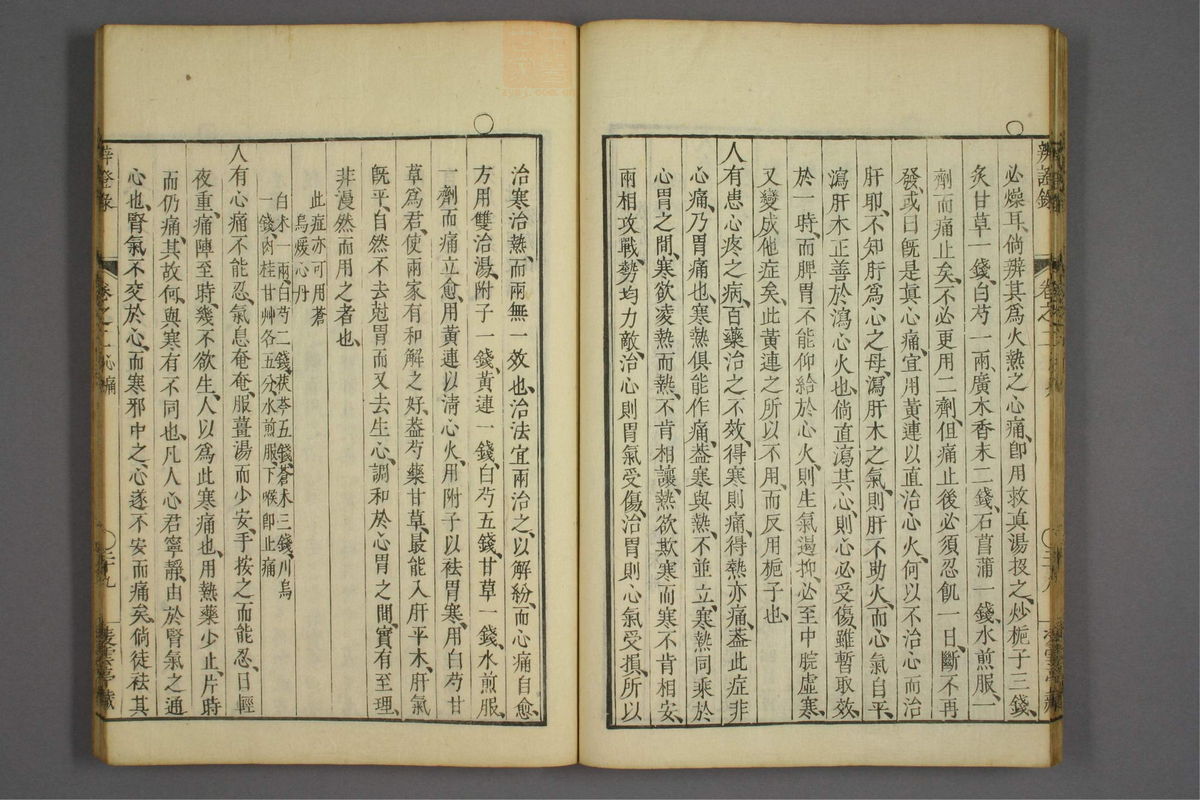 辨證錄
必燥耳、倘辨其爲火熱之心痛、卽用救眞湯投之、炒梔子三錢、
炙甘草一錢、白芍一兩、廣木香末二錢、石菖蒲一錢、水煎服、一
劑而痛止矣、不必更用二劑、但痛止後必須忍飢一日、斷不再
發、或曰旣是眞心痛、宜用黃連以直治心火、何以不治心而治
肝耶、不知肝爲心之母、瀉肝木之氣、則肝不助火、而心氣自平、
瀉肝木正善於瀉心火也、倘直瀉其心、則心必受傷、雖暫取效
於一時、而脾胃不能仰給於心火、則生氣遏抑、必至中脘虛寒、
又變成他症矣、此黃連之所以不用、而反用梔子也、
人有患心疼之病、百藥治之不效、得寒則痛、得熱亦痛、葢此症非
心痛、乃胃痛也、寒熱俱能作痛、葢寒與熱、不並立、寒熱同乘於
心胃之間、寒欲凌熱而熱、不肯相讓、熱欲欺寒而寒不肯相安、
兩相攻戰、勢均力敵、治心則胃氣受傷、治胃則心氣受損、所以
治寒治熱、而兩無一效也、治法宜兩治之、以解紛、而心痛自愈、
方用雙治湯、附子一錢、黃連一錢、白芍五錢、甘草一錢、水煎服、
一劑而痛立愈、用黃連以清心火、用附子以祛胃寒、用白芍甘
草爲君、使兩家有和解之好、葢芍藥甘草、最能入肝平木、肝氣
旣平、自然不去尅胃而又去生心、調和於心胃之間、實有至理、
非漫然而用之者也、
此症亦可用蒼
烏煖心丹
白朮一兩、白芍二錢、茯苓五錢、蒼朮三錢、川烏
一錢、肉桂甘艸各五分、水煎服、下喉卽止痛
人有心痛不能忍、氣息奄奄、服薑湯而少安、手按之而能忍、日輕
夜重、痛陣至時、幾不欲生、人以爲此寒痛也、用熱藥少止、片時
而仍痛、其故何與、寒有不同也、凡人心君寧靜、由於腎氣之通
心也、腎氣不交於心、而寒邪中之、心遂不安而痛矣、倘徒祛其
卷之二 心痛
二十九